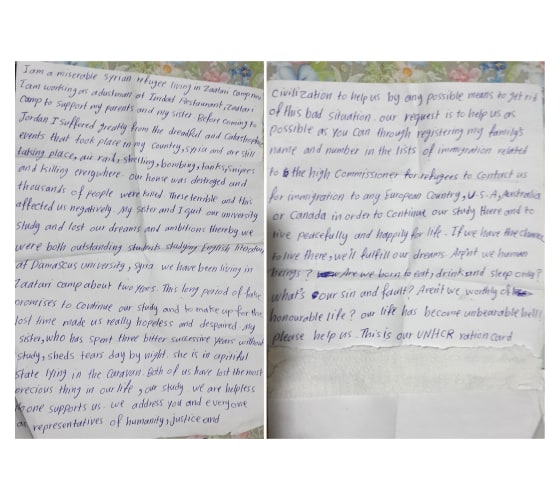 I am a miserable Syrian refugee living in Zaatari camp now
I am working as a dustman at Imdad Restaurant, Zaatari
Camp to support my parents and my sister Before coming to
Jordan I suffered greatly from the dreadful and Catastrophic
events that took place in my Country, Syria and are still
taking place, air raid, shelling, bombing, tanks, snipers
and killing everywhere. our house was destroyed and
thousands of people were killed These terrible and this
affected us negatively. My sister and I quit our university
study and lost our dreams and ambitions thereby we
were both outstanding students studying English literature
at Damascus university, Syria. we have been living in
Zaatari camp about two years. This long period of fake
promises to continue our study and to make up for the
lost time made us really hopeless and despaired My
sister, who has spent three bitter successive years without
study, sheds tears day by night. she is in a pitiful
state lying in the Caravan. Both of us have lost the most
precious thing in our life, our study. we are helpless
no one supports us. we address you and everyone
as representatives of humanity, justice and
Civilization to help us by any possible means to get rid
of this bad situation. our request is to help us as
possible as you can through registering my family's
name and number in the lists of immigration related
to the high Commissioner for refugees to Contact us
for immigration to any European Country, U.S.A, Australia
or Canada in order to Continue our study there and to
live peacefully and happily for life. If we have the chance
to live there, we'll fulfill our dreams. Aren't we human
beings? Are we born to eat, drink and sleep only?
what's our sin and fault? Aren't we worthly of
honourable life? our life has become unbearable hell!
please help us. This is our UNHCR ration card